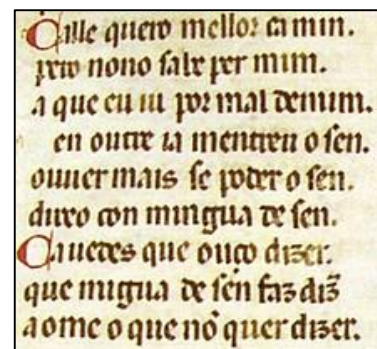 Calle quero mellor ca min.
pero nono sabe per mim.
a que eu ui por mal de mim.
en outre ia mentren o sen.
ouuer mais se poder o sen.
direo con mingua de sen.
Ca uedes que ouço dizer.
que migua de sen faz diz̃
a ome o que nõ quer dizer.